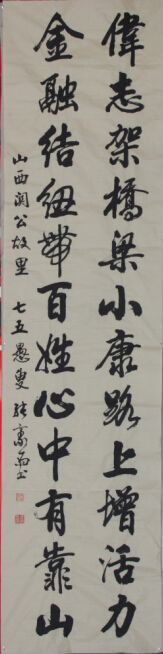 偉志架橋梁小康路上增活力
金融結紐帶百姓心中有靠山
山西関公故里 七五愚叟 張